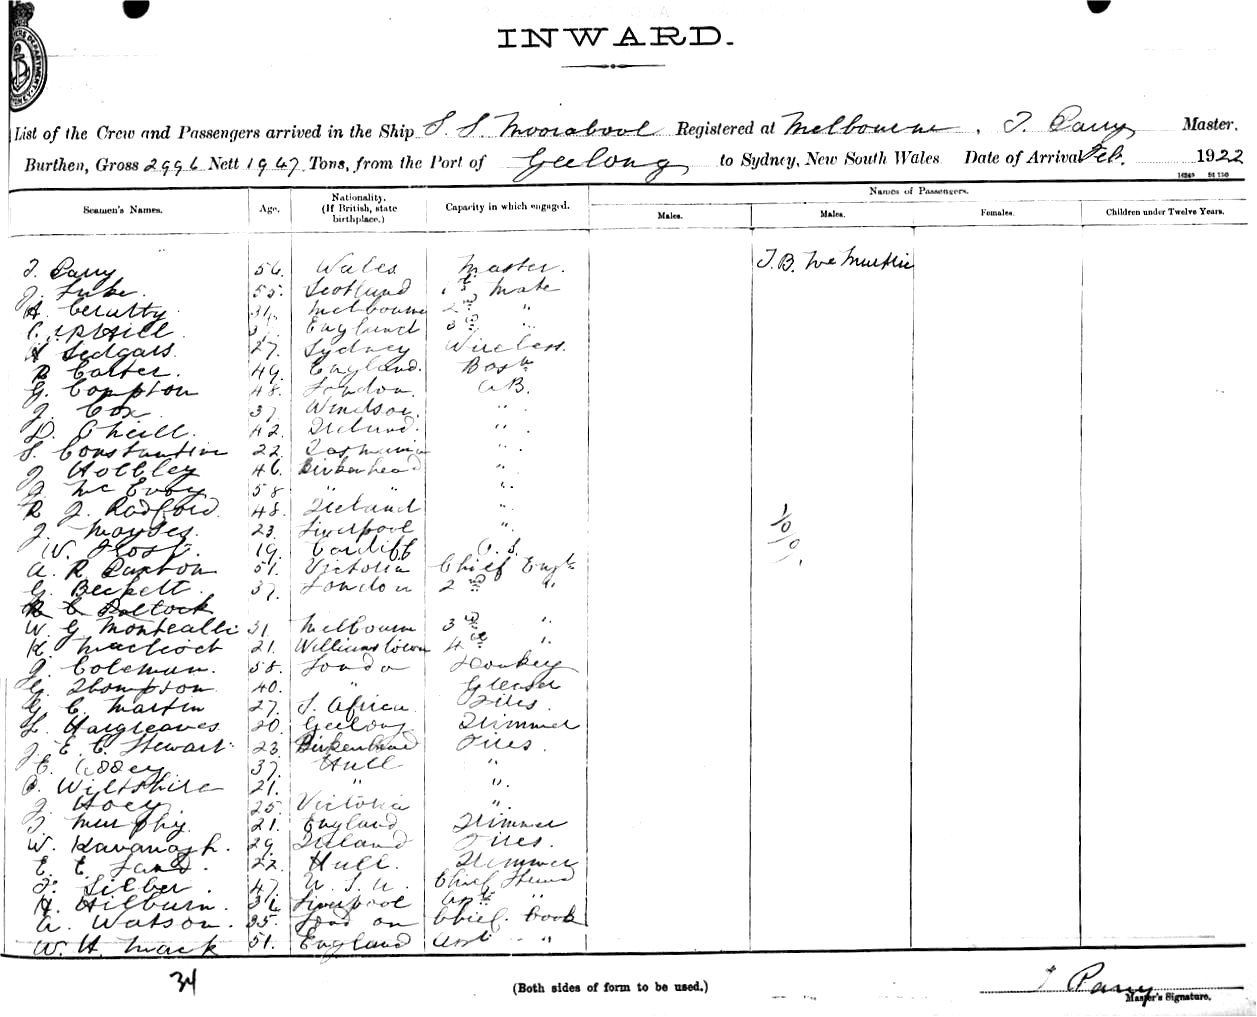 INWARD.
List of the Crew and Passengers arrived in the Ship S. S. Moorabool Registered at Melbourne, T. Parry Master.
Burthen, Gross 2996 Nett 1947 Tons, from the Port of Geelong to Sydney, New South Wales Date of Arrival Feb. 1922
Seamen's Names. Age. Nationality. (If British, state birthplace.) Capacity in which engaged. Names of Passengers.
Males. Males. Females. Children under Twelve Years.
T. Parry 56. Wales Master. T. B. McMurtrie
J. Luke. 55. Scotland 1st Mate
A. 31. Melbourne 2nd "
C. Uphill England 3rd "
27. Sydney Wireless.
R Carter. 49. England. Bosn
G. Compton 48. London. A B.
J. Cox 37 Windsor. "
D. O'Neill. 42. Ireland. "
S. Constantine 22. Tasmania "
J 46. Birkenhead "
J. McEvoy 58 " " "
R J. Radford 48. Ireland "
J. Moyses 23. Liverpool "
W. Frost. 19. Cardiff O. S.
A. R Paxton 51. Victoria Chief Engr
G. Beckett 37. London 2nd "
W. G 31. Melbourne 3rd "
21. Williamstown 4th "
J. Coleman. 58. London Donkey
G. Thompson 40. " Greaser
G C. Martin 27. S. Africa Fires.
L. Hargreaves 20. Geelong Trimmer
J. E. C. Stewart 23. Birkenhead Fires.
E. 37. Hull "
Wiltshire 21. " "
J. Hoey 25. Victoria "
T. Murphy. 21. England Trimmer
W. Kavanagh. 29. Ireland Fires.
E. E. Land. 22. Hull. Trimmer
F. Silber. 47. U. S. A. Chief Stewd
H. Hilburn. Liverpool Asst "
A. Watson. 35. London Chief. Cook
W. H. Mack 51. England Asst "
34
(Both sides of form to be used.)
T Parry
Master's Signature.